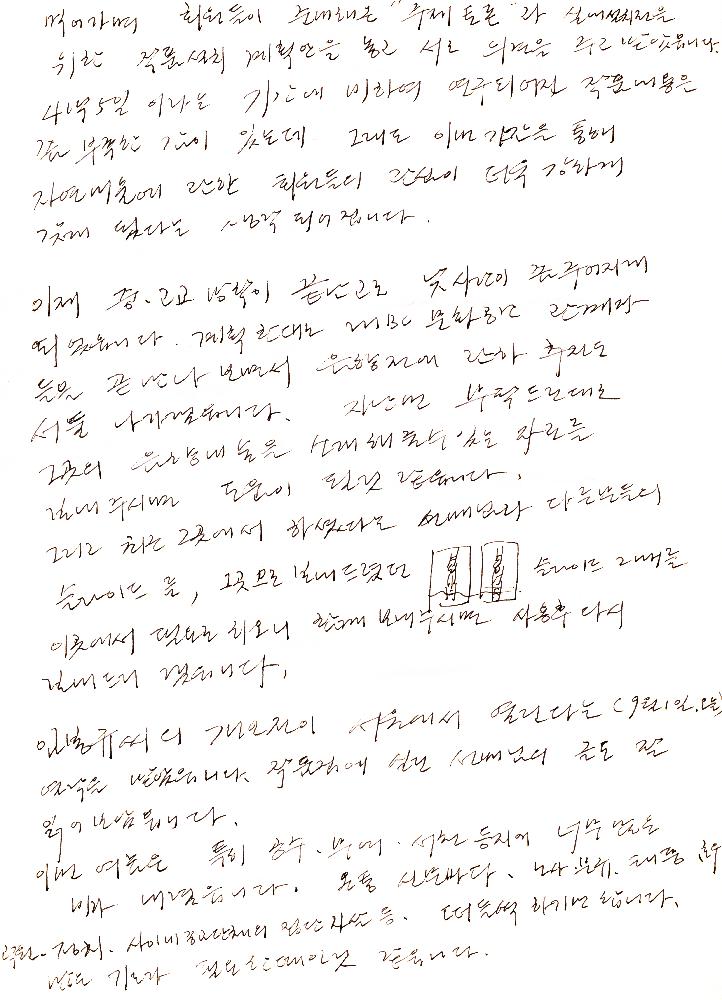 먹어가며 회원들이 돌배해온 "주제토론"과 실내설치전을
위한 작품설치 계획안을 놓고 서로 의견을 주고 받았읍니다.
4박5일 이라는 기간에 비하여 연구되어진 작품내용은
좀 부족한 감이 있는데 그래도 이번 기간을 통해
자연미술에 관한 회원들의 관심이 더욱 강하게
갖게 됐다는 생각 되어집니다.
이제 중·고교 방학이 끝난고로 낮시간이 좀 주어지게
되었읍니다. 계획한대로 MBC 문화원과 관계가
끝난나 보면서 은행전에 관한 추진도
서둘 나가겠읍니다. 지난번 부탁드린대로
그곳의 내용을 소개해 줄수 있는 자료를
보내주시면 도움이 될것 같읍니다.
그리고 최근 그곳에서 하셨다는 선배님과 다른분들의
슬라이드 와, 그곳으로 보내드렸던 슬라이드 2매를
이곳에서 필요로 하오니 함께 보내주시면 사용후 다시
보내드리겠읍니다.
임봉규씨의 개인전이 서울에서 열린다는 (9월1일.
연락을 받았읍니다. 작품집에 실린 선배님의 글도 잘
읽어 보았읍니다.
이번 여름은 특히 공주·부여·서천 등지에 너무 많은
비가 내렸읍니다. 요즘 신문마다, 노사분규, 태풍, 호우
정치, 사이비종교단체의 집단자살 등, 떠들썩 하기만 합니다.
기도가 필요한때인것 같읍니다.